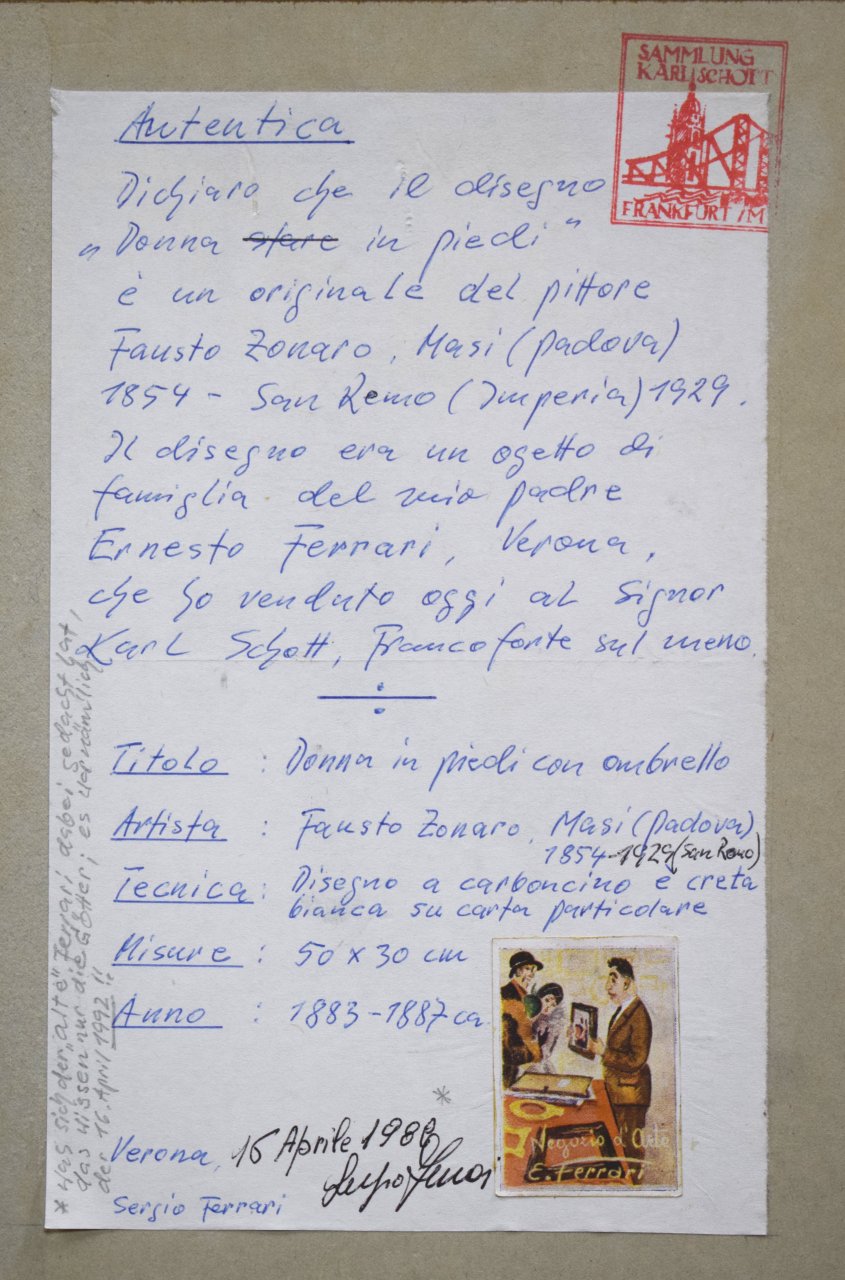 SAMMLUNG
KARL SCHOTT
FRANKFURT/M
Autentica
Dichiaro che il disegno
„Donna stare in piedi"
è un originale del pittore
Fausto Zonaro, Masi (Padova)
1854 - San Remo (Imperia) 1929.
Il disegno era un ogetto di
famiglia del mio padre
Ernesto Ferrari, Verona,
che ho venduto oggi al Signor
Karl Schott, Francoforte sul meno.
Titolo : Donna in piedi con ombrello
Artista : Fausto Zonaro, Masi (Padova)
1854-1929 (San Remo)
Tecnica : Disegno a carboncino e creta
bianca su carta particolare
Misure : 50 x 30 cm
Anno : 1883-1887 ca
*
Verona, 16 Aprile
Sergio Ferrari
Negozio d'Arte
E. Ferrari
* Was sich der „alte" Ferrari dabei gedacht hat,
das wissen nur die Götter; es war nämlich
der 16. April 1992!!